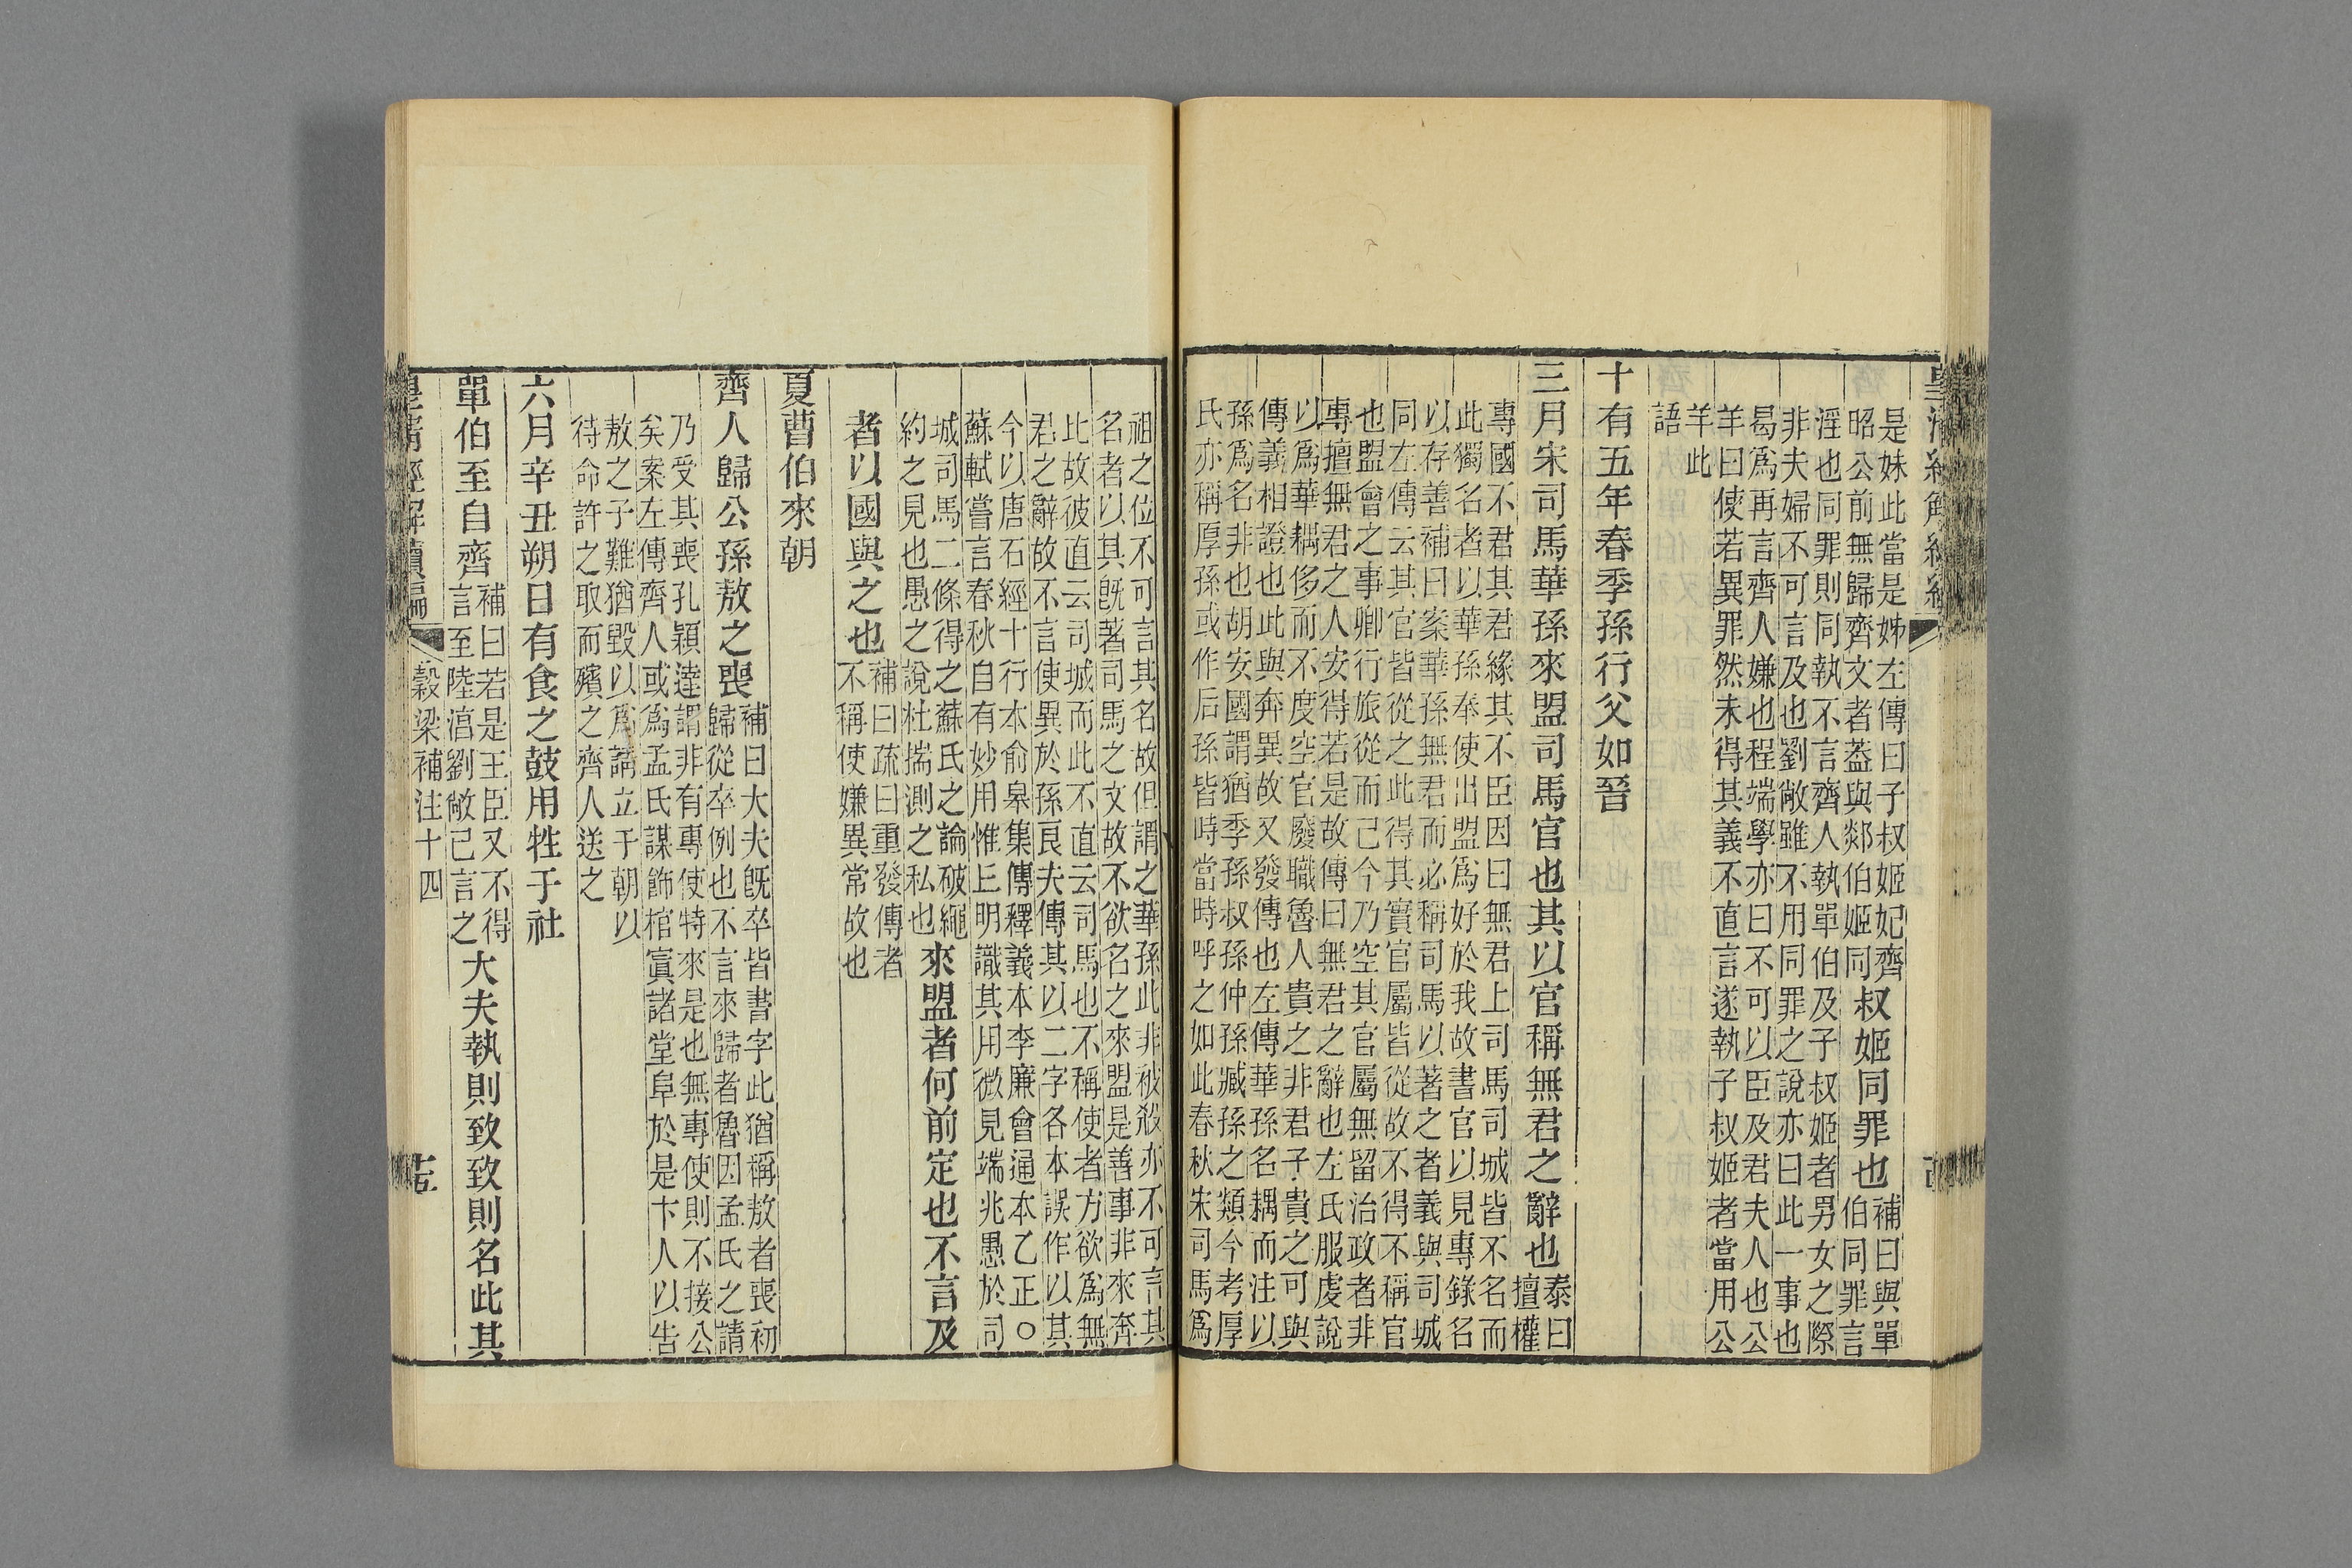 是妹此當是姊左傳曰子叔姬妃齊
昭公前無歸齊文者葢與郯伯姬同
叔姬同罪也
補曰與單
伯同罪言
淫也同罪則同執不言齊人執單伯及子叔姬者男女之際
非夫婦不可言及也劉敞雖不用同罪之說亦曰此一事也
曷爲再言齊人嫌也程端學亦曰不可以臣及君夫人也公
羊曰使若異罪然未得其義不直言遂執子叔姬者當用公
羊此
語
十有五年春季孫行父如晉
三月宋司馬華孫來盟司馬官也其以官稱無君之辭也
泰曰
擅權
專國不君其君緣其不臣因曰無君上司馬司城皆不名而
此獨名者以華孫奉使出盟爲好於我故書官以見專錄名
以存善補曰案華孫無君而必稱司馬以著之者義與司城
同左傳云其官皆從之此得其實官屬皆從故不得不稱官
也盟會之事卿行旅從而已今乃空其官屬無留治政者非
專擅無君之人安得若是故傳曰無君之辭也左氏服虔說
以爲華耦侈而不度空官廢職魯人貴之非君子貴之可與
傳義相證也此與奔異故又發傳也左傳華孫名耦而注以
孫爲名非也胡安國謂猶季孫叔孫仲孫臧孫之類今考厚
氏亦稱厚孫或作后孫皆時當時呼之如此春秋宋司馬爲
祖之位不可言其名故但謂之華孫此非被殺亦不可言其
名者以其旣著司馬之文故不欲名之來盟是善事非來奔
比故彼直云司城而此不直云司馬也不稱使者方欲爲無
君之辭故不言使異於孫良夫傳其以二字各本誤作以其
今以唐石經十行本俞皋集傳釋義本李廉會通本乙正○
蘇軾嘗言春秋自有妙用惟丘明識其用微見端兆愚於司
城司馬二條得之蘇氏之論破繩
約之見也愚之說杜揣測之私也
來盟者何前定也不言及
者以國與之也
補曰疏曰重發傳者
不稱使嫌異常故也
夏曹伯來朝
齊人歸公孫敖之喪
補曰大夫旣卒皆書字此猶稱敖者喪初
歸從卒例也不言來歸者魯因孟氏之請
乃受其喪孔穎達謂非有專使特來是也無專使則不接公
矣案左傳齊人或爲孟氏謀飾棺寘諸堂阜於是卞人以告
敖之子難猶毀以爲請立于朝以
待命許之取而殯之齊人送之
六月辛丑朔日有食之鼓用牲于社
單伯至自齊
補曰若是王臣又不得
言至陸湻劉敞已言之
大夫執則致致則名此其
皇清經解續編
穀梁補注十四